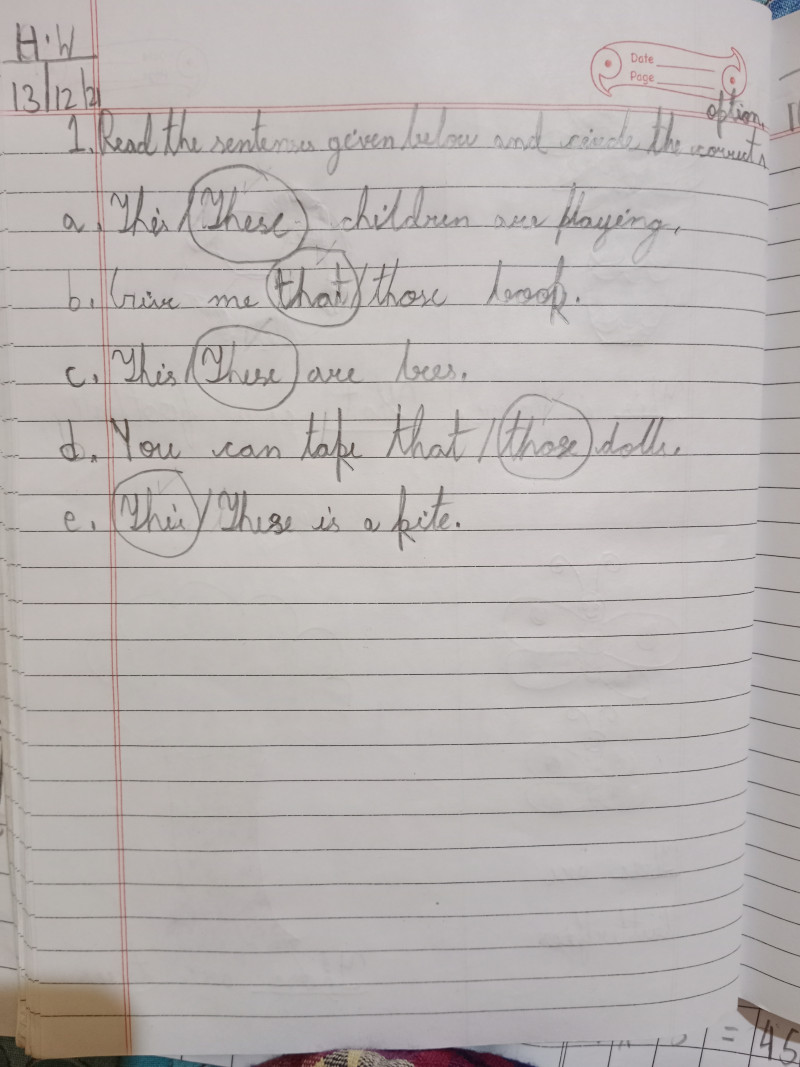 H.W
13/12/21
Date
Page
option.
1. Read the sentences given below and circle the correct
a. This / These children are playing.
b. Give me that / those book.
c. This / These are bees.
d. You can take that / those dolls.
e. This / These is a kite.
= 45